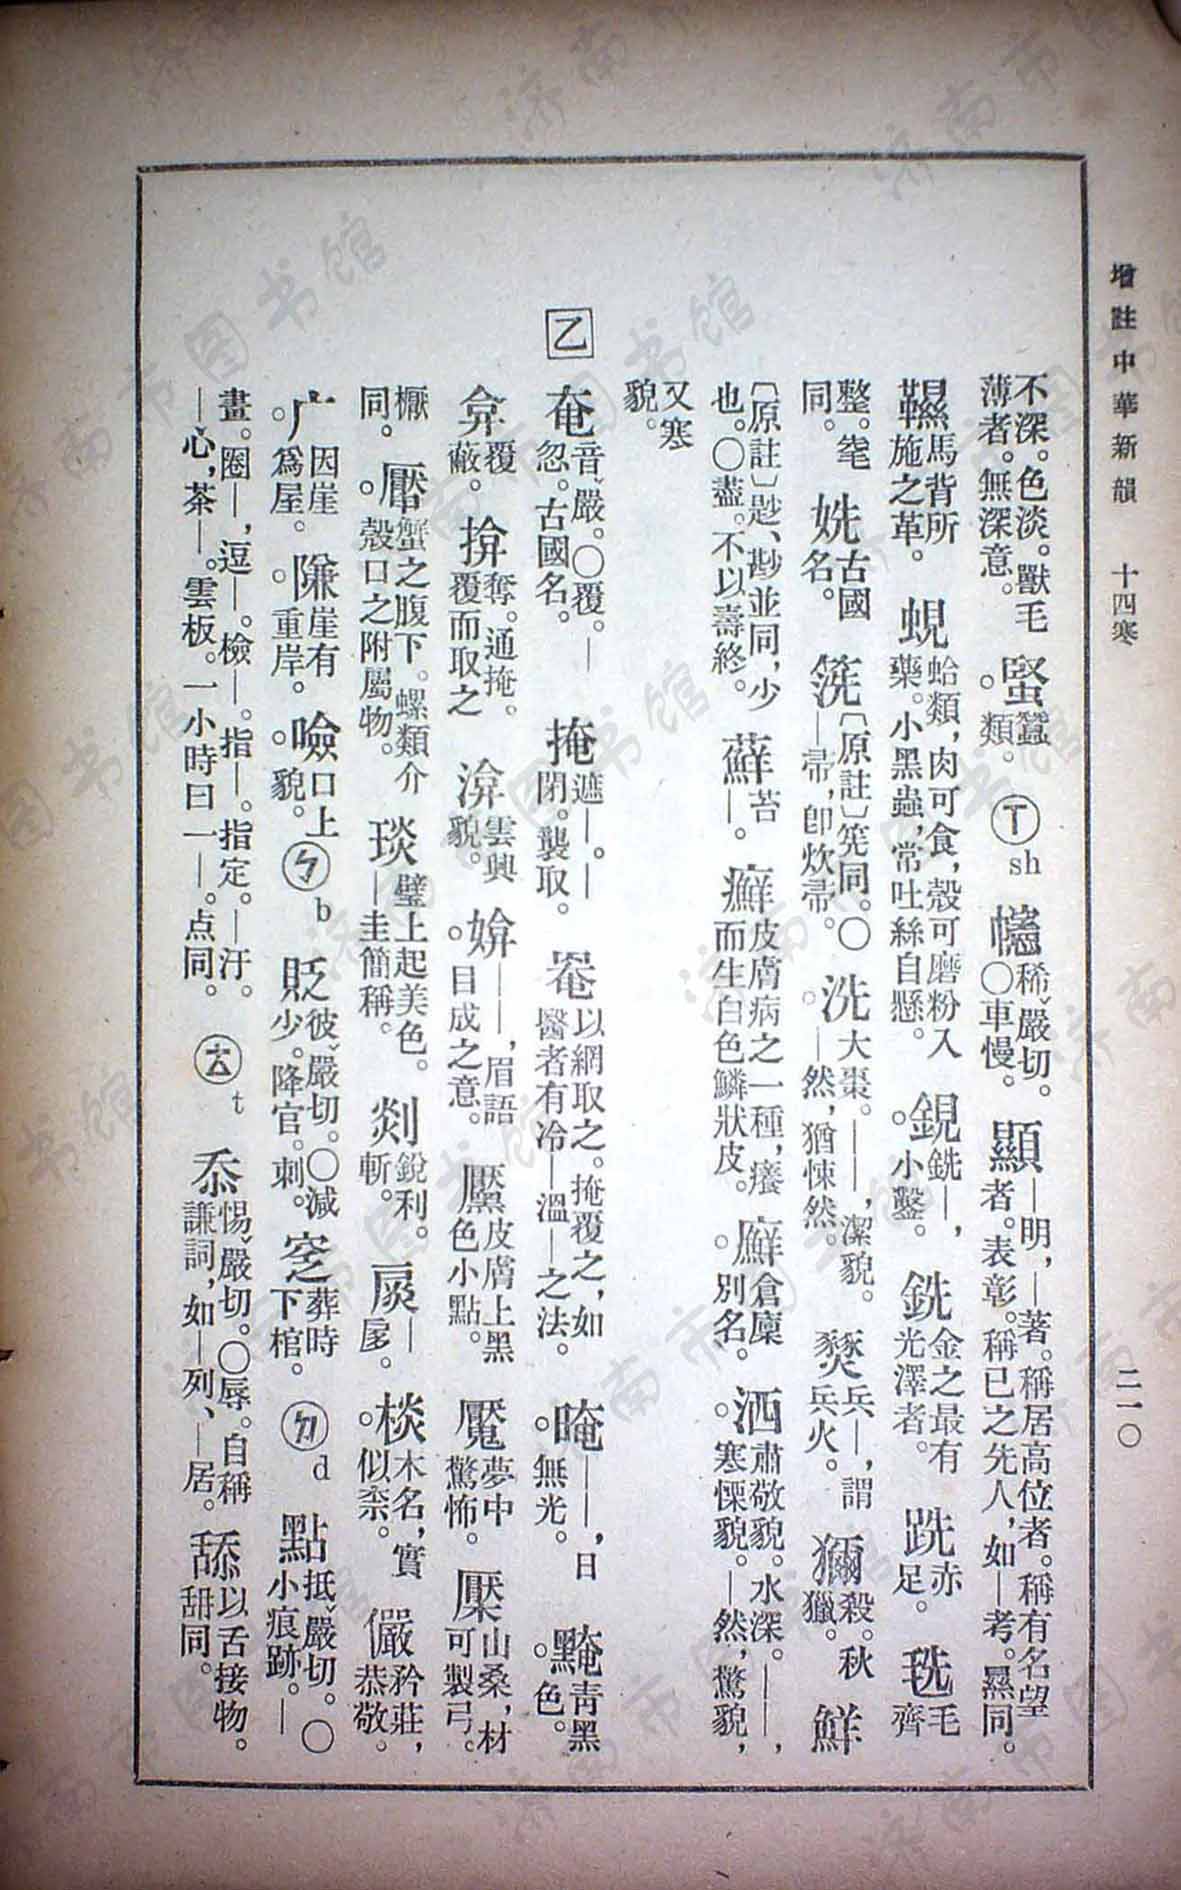 增註中華新韻　十四寒　二一〇
不深。色淡。獸毛薄者。無深意。　蜸蠶類。　ㄒsh　幰稀嚴切。〇車幔。　顯—明，—著。稱居高位者。稱有名望者。表彰。稱已之先人，如—考。㬎同。
韅馬背所施之革。　蜆蛤類，肉可食，殼可磨粉入藥。小黑蟲，常吐絲自懸。　鋧銑—，小鑿。　銑金之最有光澤者。　跣赤足。　毨毛齊
整。毣同。　姺古國名。　筅〔原註〕筅同。〇—帚，卽炊帚。　洗大棗。——，潔貌。—然，猶悚然。　燹兵—，謂兵火。　獮殺。秋獵。　鮮
〔原註〕尟、尠並同，少也。〇盡。不以壽終。　蘚苔—。　癬皮膚病之一種，癢而生白色鱗狀皮。　廯倉廩別名。　洒肅敬貌。水深。——，寒慄貌。—然，驚貌，
又寒貌。
乙　奄音嚴。〇覆。—忽。古國名。　掩遮—。——閉。襲取。　罨以網取之。掩覆之，如醫者有冷—溫—之法。　晻——，日無光。　黤青黑色。
弇覆蔽。　揜奪。通掩。覆而取之　渰雲興貌。　媕——，眉語目成之意。　黶皮膚上黑色小點。　魘夢中驚怖。　檿山桑，材可製弓。
橛同。　厴蟹之腹下。螺類介殼口之附屬物。　琰璧上起美色。—圭簡稱。　剡銳利。斬。　扊—扅。　棪木名，實似柰。　儼矜莊，恭敬。
广因崖爲屋。　隒崖有重岸。　噞口上貌。　ㄅb　貶彼嚴切。〇減少。降官。刺。　窆葬時下棺。　ㄉd　點抵嚴切。〇小痕跡。—
畫。圈—，逗—。檢—。指—。指定。—汙。—心，茶—。雲板。一小時曰一—。点同。　ㄊt　忝惕嚴切。〇辱。自稱謙詞，如—列、—居。　舔以舌接物。同。